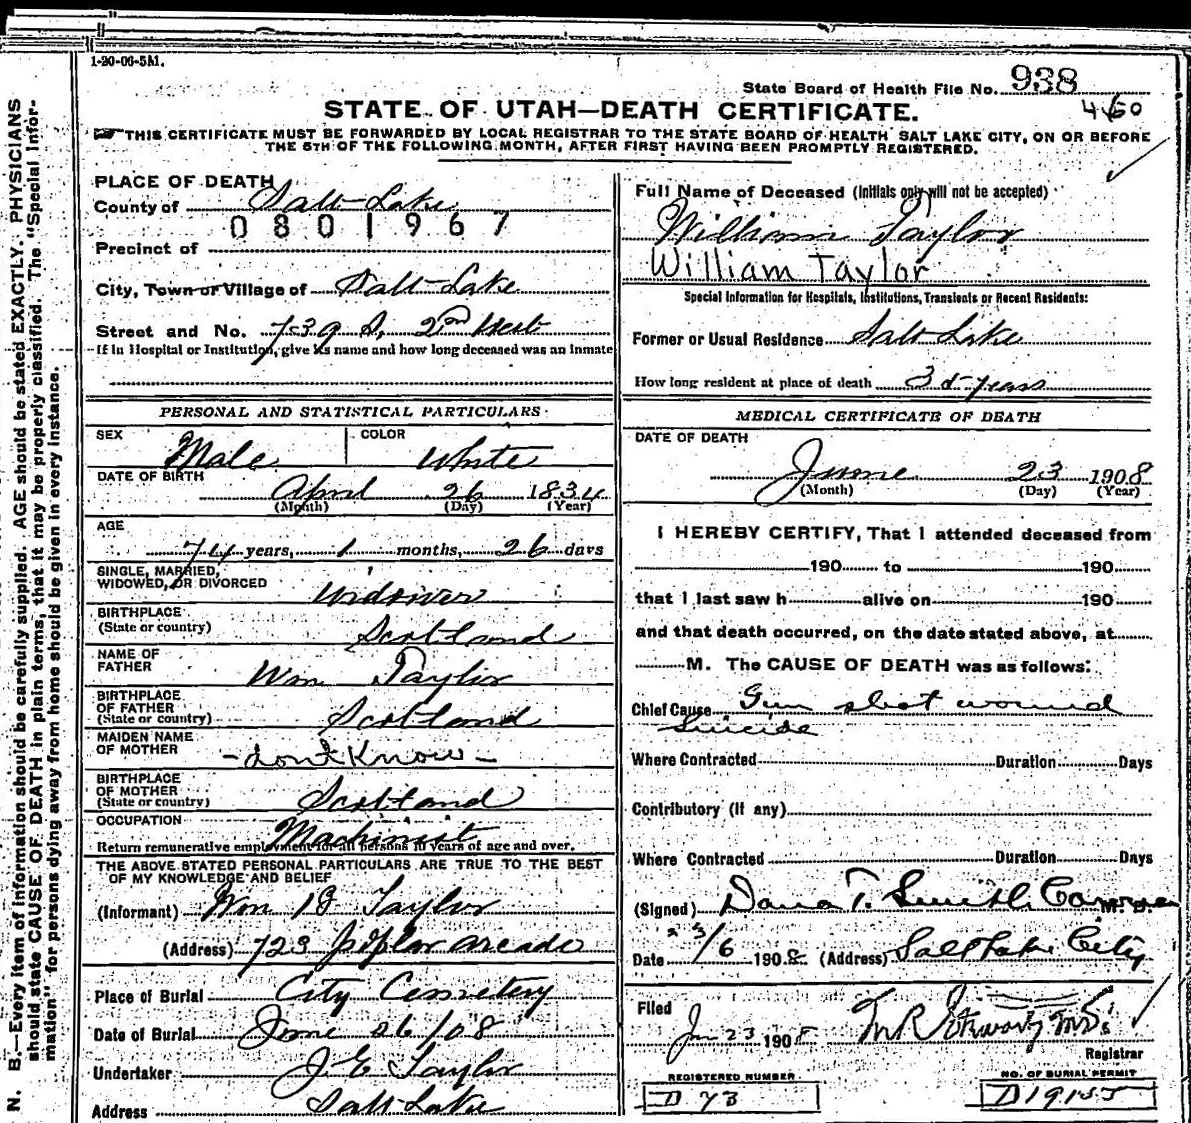 1-20-06-5M.
State Board of Health File No. 938
STATE OF UTAH—DEATH CERTIFICATE.
460
THIS CERTIFICATE MUST BE FORWARDED BY LOCAL REGISTRAR TO THE STATE BOARD OF HEALTH SALT LAKE CITY, ON OR BEFORE
THE 5TH OF THE FOLLOWING MONTH, AFTER FIRST HAVING BEEN PROMPTLY REGISTERED.
N. B.—Every item of information should be carefully supplied. AGE should be stated EXACTLY. PHYSICIANS
should state CAUSE OF DEATH in plain terms, that it may be properly classified. The "Special Infor-
mation" for persons dying away from home should be given in every instance.
PLACE OF DEATH
County of Salt Lake
0801967
Precinct of
City, Town or Village of Salt Lake
Street and No. 739 S. 2nd West
If in Hospital or Institution, give its name and how long deceased was an inmate
PERSONAL AND STATISTICAL PARTICULARS
SEX Male COLOR White
DATE OF BIRTH
April 26 1834
(Month) (Day) (Year)
AGE
74 years, 1 months, 26 days
SINGLE, MARRIED,
WIDOWED, OR DIVORCED Widower
BIRTHPLACE
(State or country) Scotland
NAME OF
FATHER Wm Taylor
BIRTHPLACE
OF FATHER
(State or country) Scotland
MAIDEN NAME
OF MOTHER -dont Know-
BIRTHPLACE
OF MOTHER
(State or country) Scotland
OCCUPATION Machinist
Return remunerative employment for all persons 10 years of age and over.
THE ABOVE STATED PERSONAL PARTICULARS ARE TRUE TO THE BEST
OF MY KNOWLEDGE AND BELIEF
(Informant) Wm B Taylor
(Address) 723 Poplar arcade
Place of Burial City Cemetery
Date of Burial June 26/08
Undertaker J. E Taylor
Address Salt Lake
Full Name of Deceased (Initials only will not be accepted)
William Taylor
William Taylor
Special Information for Hospitals, Institutions, Transients or Recent Residents:
Former or Usual Residence Salt Lake
How long resident at place of death 35 years
MEDICAL CERTIFICATE OF DEATH
DATE OF DEATH
June 23 1908
(Month) (Day) (Year)
I HEREBY CERTIFY, That I attended deceased from
190 to 190
that I last saw h alive on 190
and that death occurred, on the date stated above, at
M. The CAUSE OF DEATH was as follows:
Chief Cause Gun shot wound
Suicide
Where Contracted Duration Days
Contributory (if any)
Where Contracted Duration Days
(Signed) Dana T. Smith Coroner M. D.
Date 23/6 1908 (Address) Salt Lake City
Filed
Jun 23 1908
Registrar
REGISTERED NUMBER
D 73
NO. OF BURIAL PERMIT
D19155